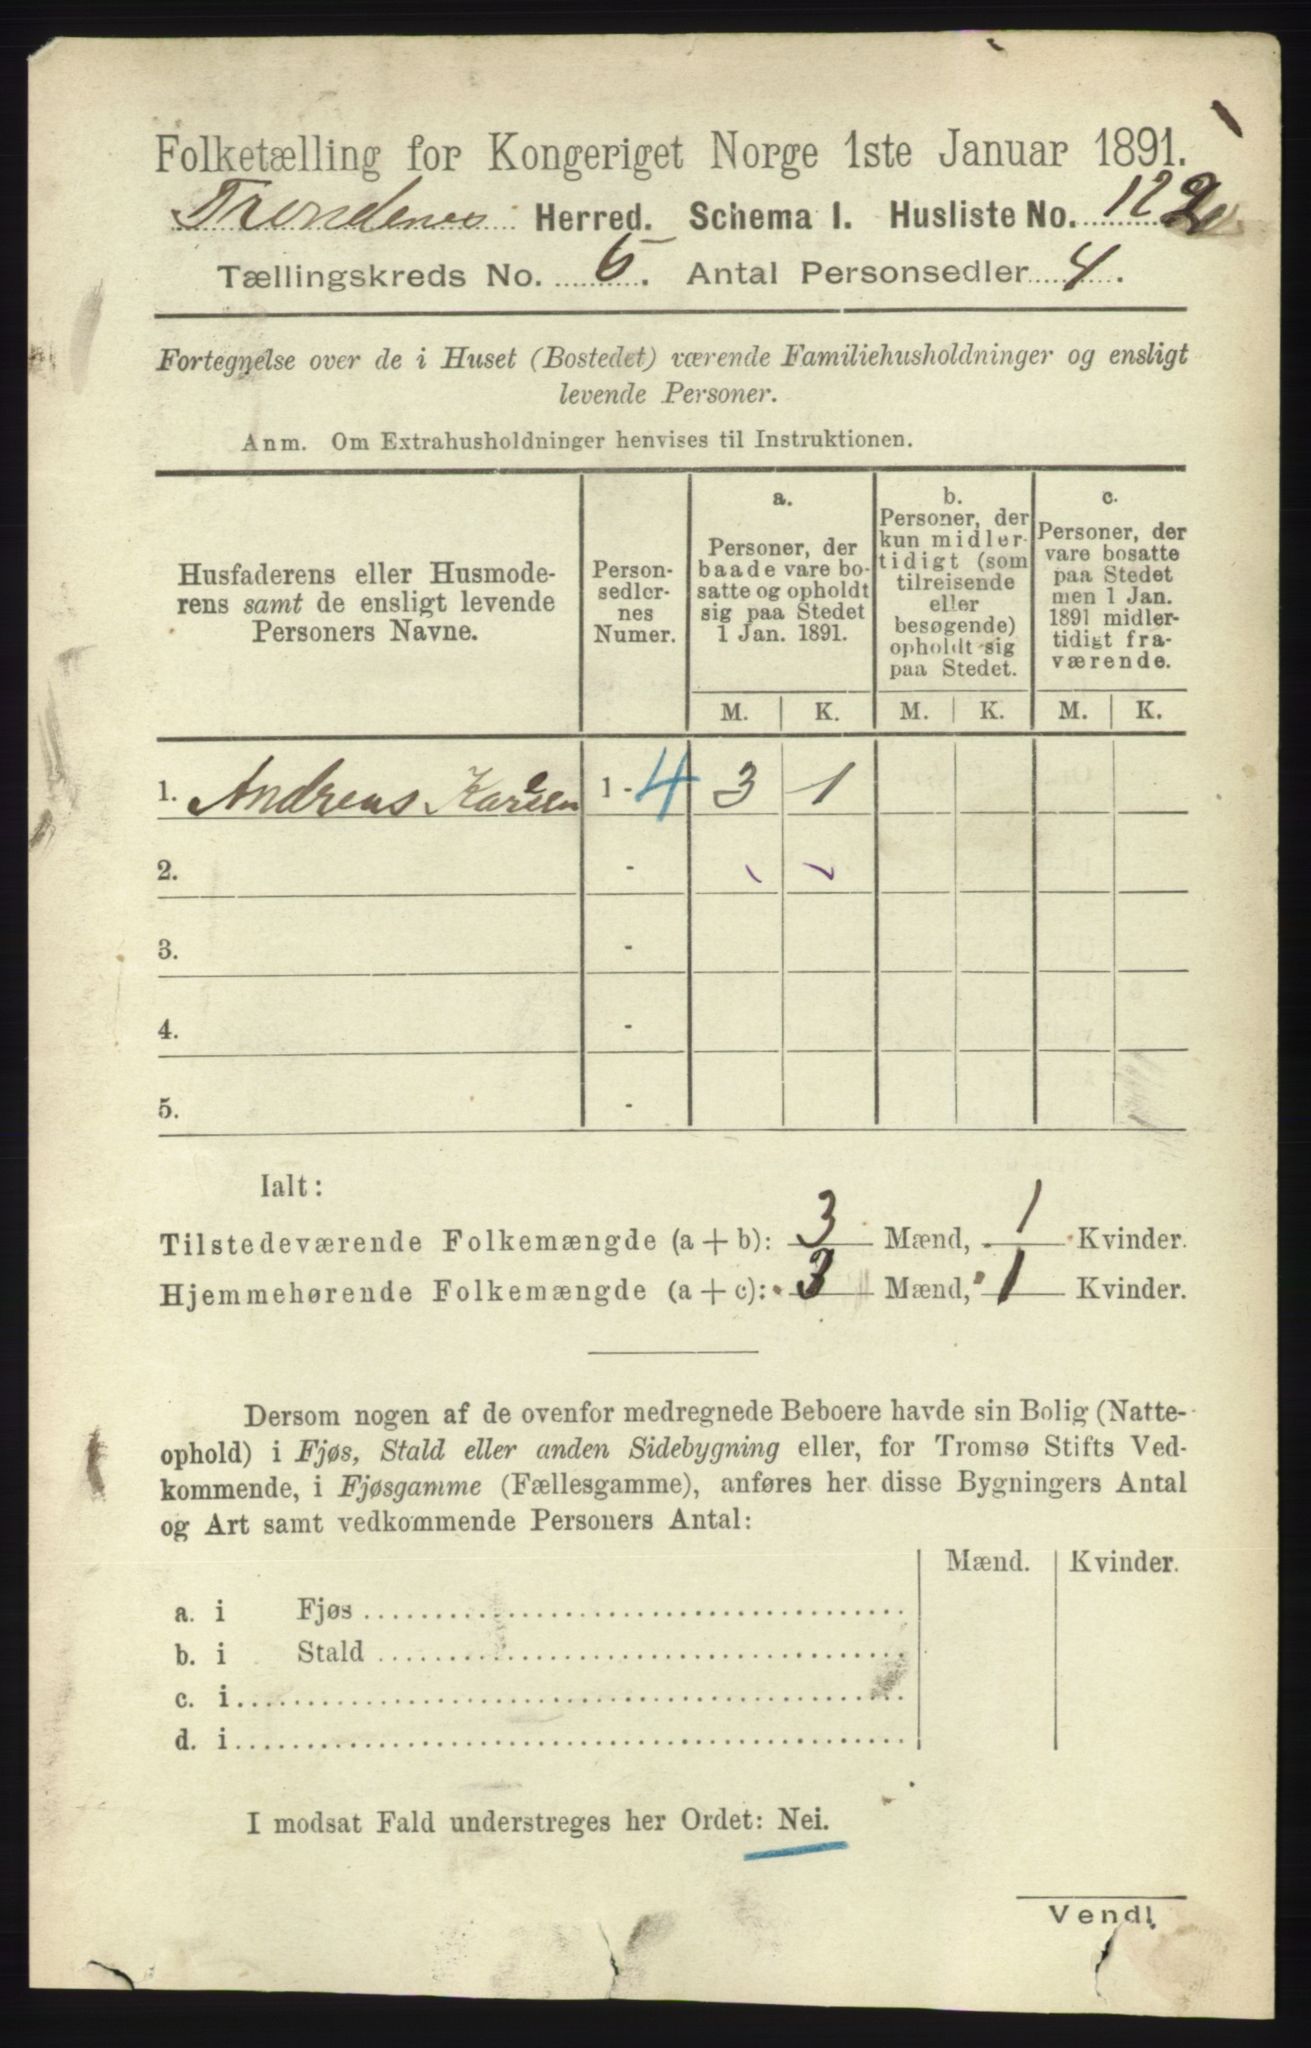 Folketælling for Kongeriget Norge 1ste Januar 1891.
Trondenes Herred. Schema I. Husliste No. 122
Tællingskreds No. 5. Antal Personsedler 4.
Fortegnelse over de i Huset (Bostedet) værende Familiehusholdninger og ensligt
levende Personer.
Anm. Om Extrahusholdninger henvises til Instruktionen.
Husfaderens eller Husmode-
rens samt de ensligt levende
Personers Navne.
Person-
sedler-
nes
Numer.
a.
Personer, der
baade vare bo-
satte og opholdt
sig paa Stedet
1 Jan. 1891.
b.
Personer, der
kun midler-
tidigt (som
tilreisende
eller
besøgende)
opholdt sig
paa Stedet.
c.
Personer, der
vare bosatte
paa Stedet
men 1 Jan.
1891 midler-
tidigt fra-
værende.
M. K. M. K. M. K.
1. Andreas 1 - 4 3 1
2. -
3. -
4. -
5. -
Ialt:
Tilstedeværende Folkemængde (a + b): 3 Mænd, 1 Kvinder.
Hjemmehørende Folkemængde (a + c): 3 Mænd, 1 Kvinder.
Dersom nogen af de ovenfor medregnede Beboere havde sin Bolig (Natte-
ophold) i Fjøs, Stald eller anden Sidebygning eller, for Tromsø Stifts Ved-
kommende, i Fjøsgamme (Fællesgamme), anføres her disse Bygningers Antal
og Art samt vedkommende Personers Antal:
Mænd. Kvinder.
a. i Fjøs
b. i Stald
c. i
d. i
I modsat Fald understreges her Ordet: Nei.
Vend!